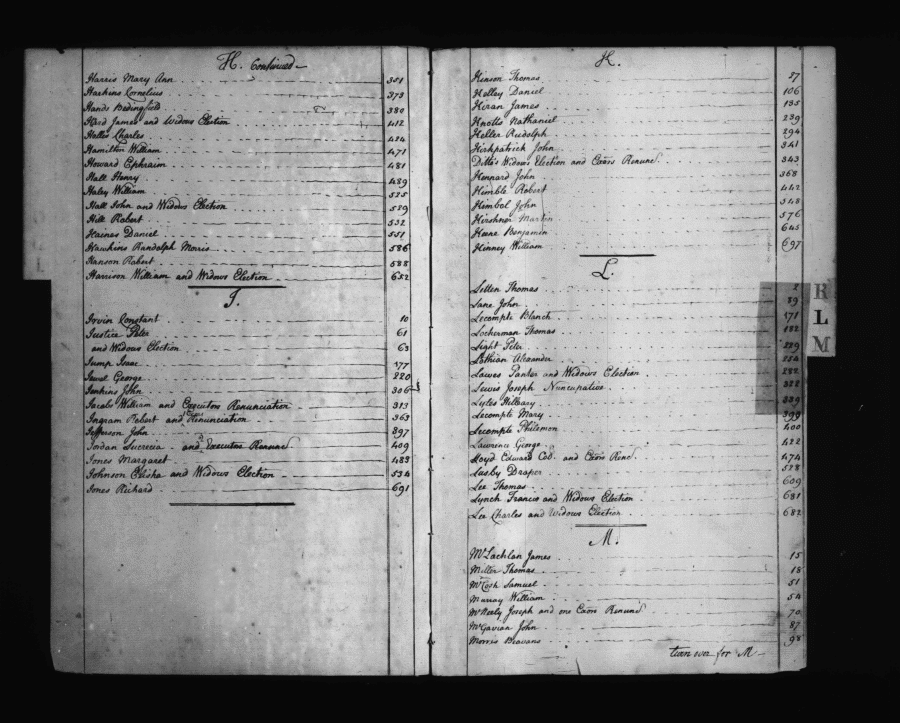 H. Continued
Harris Mary Ann 351
Harkins Cornelius 373
Hands Bedingfield 380
Hard James and Widows Election 412
Hollis Charles 424
Hamilton William 471
Howard Ephraim 481
Hall Henry 489
Haley William 525
Hall John and Widows Election 529
Hill Robert 532
Haines Daniel 551
Hawkins Randolph Morris 586
Hanson Robert 588
Harrison William and Widows Election 652
J.
Irvin Constant 10
Justice Peter 61
and Widows Election 63
Jump Isaac 177
Jewel George 220
Jenkins John 306
Jacobs William and Executors Renunciation 313
Ingram Robert and Renunciation 363
Jefferson John 397
Jordan Lucrecia and Executors Renunc 409
Jones Margaret 483
Johnson Elisha and Widows Election 534
Jones Richard 691
K.
Kinson Thomas 57
Kelley Daniel 106
Kiran James 135
Knotts Nathaniel 239
Keller Rudolph 294
Kirkpatrick John 341
Ditto's Widows Election and Exors Renunc 343
Kennard John 368
Kimble Robert 442
Kimbol John 548
Kirshner Martin 576
Keene Benjamin 645
Kinney William 697
L.
Thomas 2
Lane John 29
Lecompte Blanch 171
Lockerman Thomas 182
Light Peter 229
Lothian Alexander
Lawes Panter and Widows Election 282
Lewis Joseph Nuncupative 322
Lyles Hilleary 389
Lecompte Mary 399
Lecompte Philemon 400
Lawrence George 422
Loyd Edward Col. and Exors Renc 474
Lusby Draper 528
Lee Thomas 609
Lynch Francis and Widows Election 681
Lee Charles and Widows Election 682
R
L
M
M.
McLachlan James 15
Miller Thomas 18
McCosh Samuel 51
Murray William 54
McNeely Joseph and one Exors Renunc 70
McGavran John 87
Morris Beavans 98
turn over for M